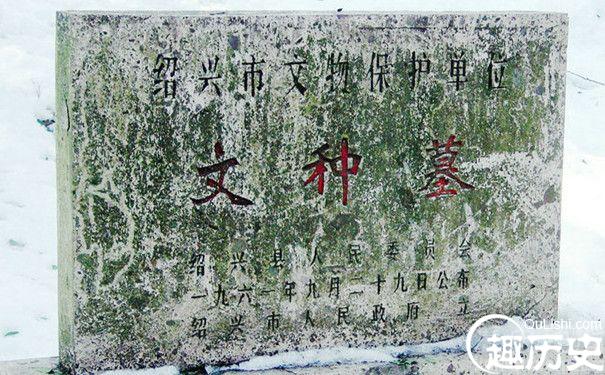 绍兴市文物保护单位
文种墓
绍兴县人民委员会
一九六一年九月二十九日公布
绍兴市人民政府立
QuLishi.com
趣历史